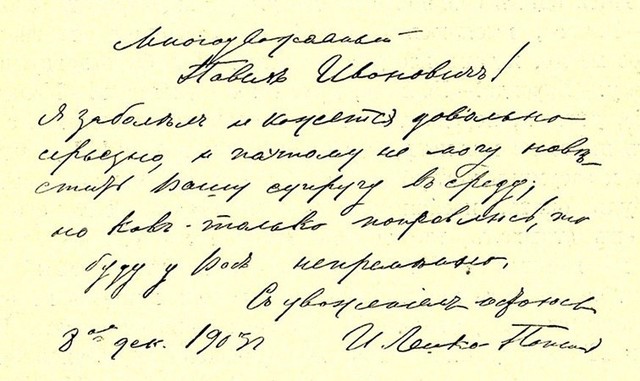 Многоуважаемый
Павелъ Ивановичъ!
Я заболѣлъ и кажется довольно
серьезно, и потому не могу навѣ-
стить Вашу супругу въ среду,
но какъ-только поправлюсь, то
буду у Васъ непремѣнно.
Съ уваженіемъ остаюсь
дек. 1905 г И. Лейко-Попов